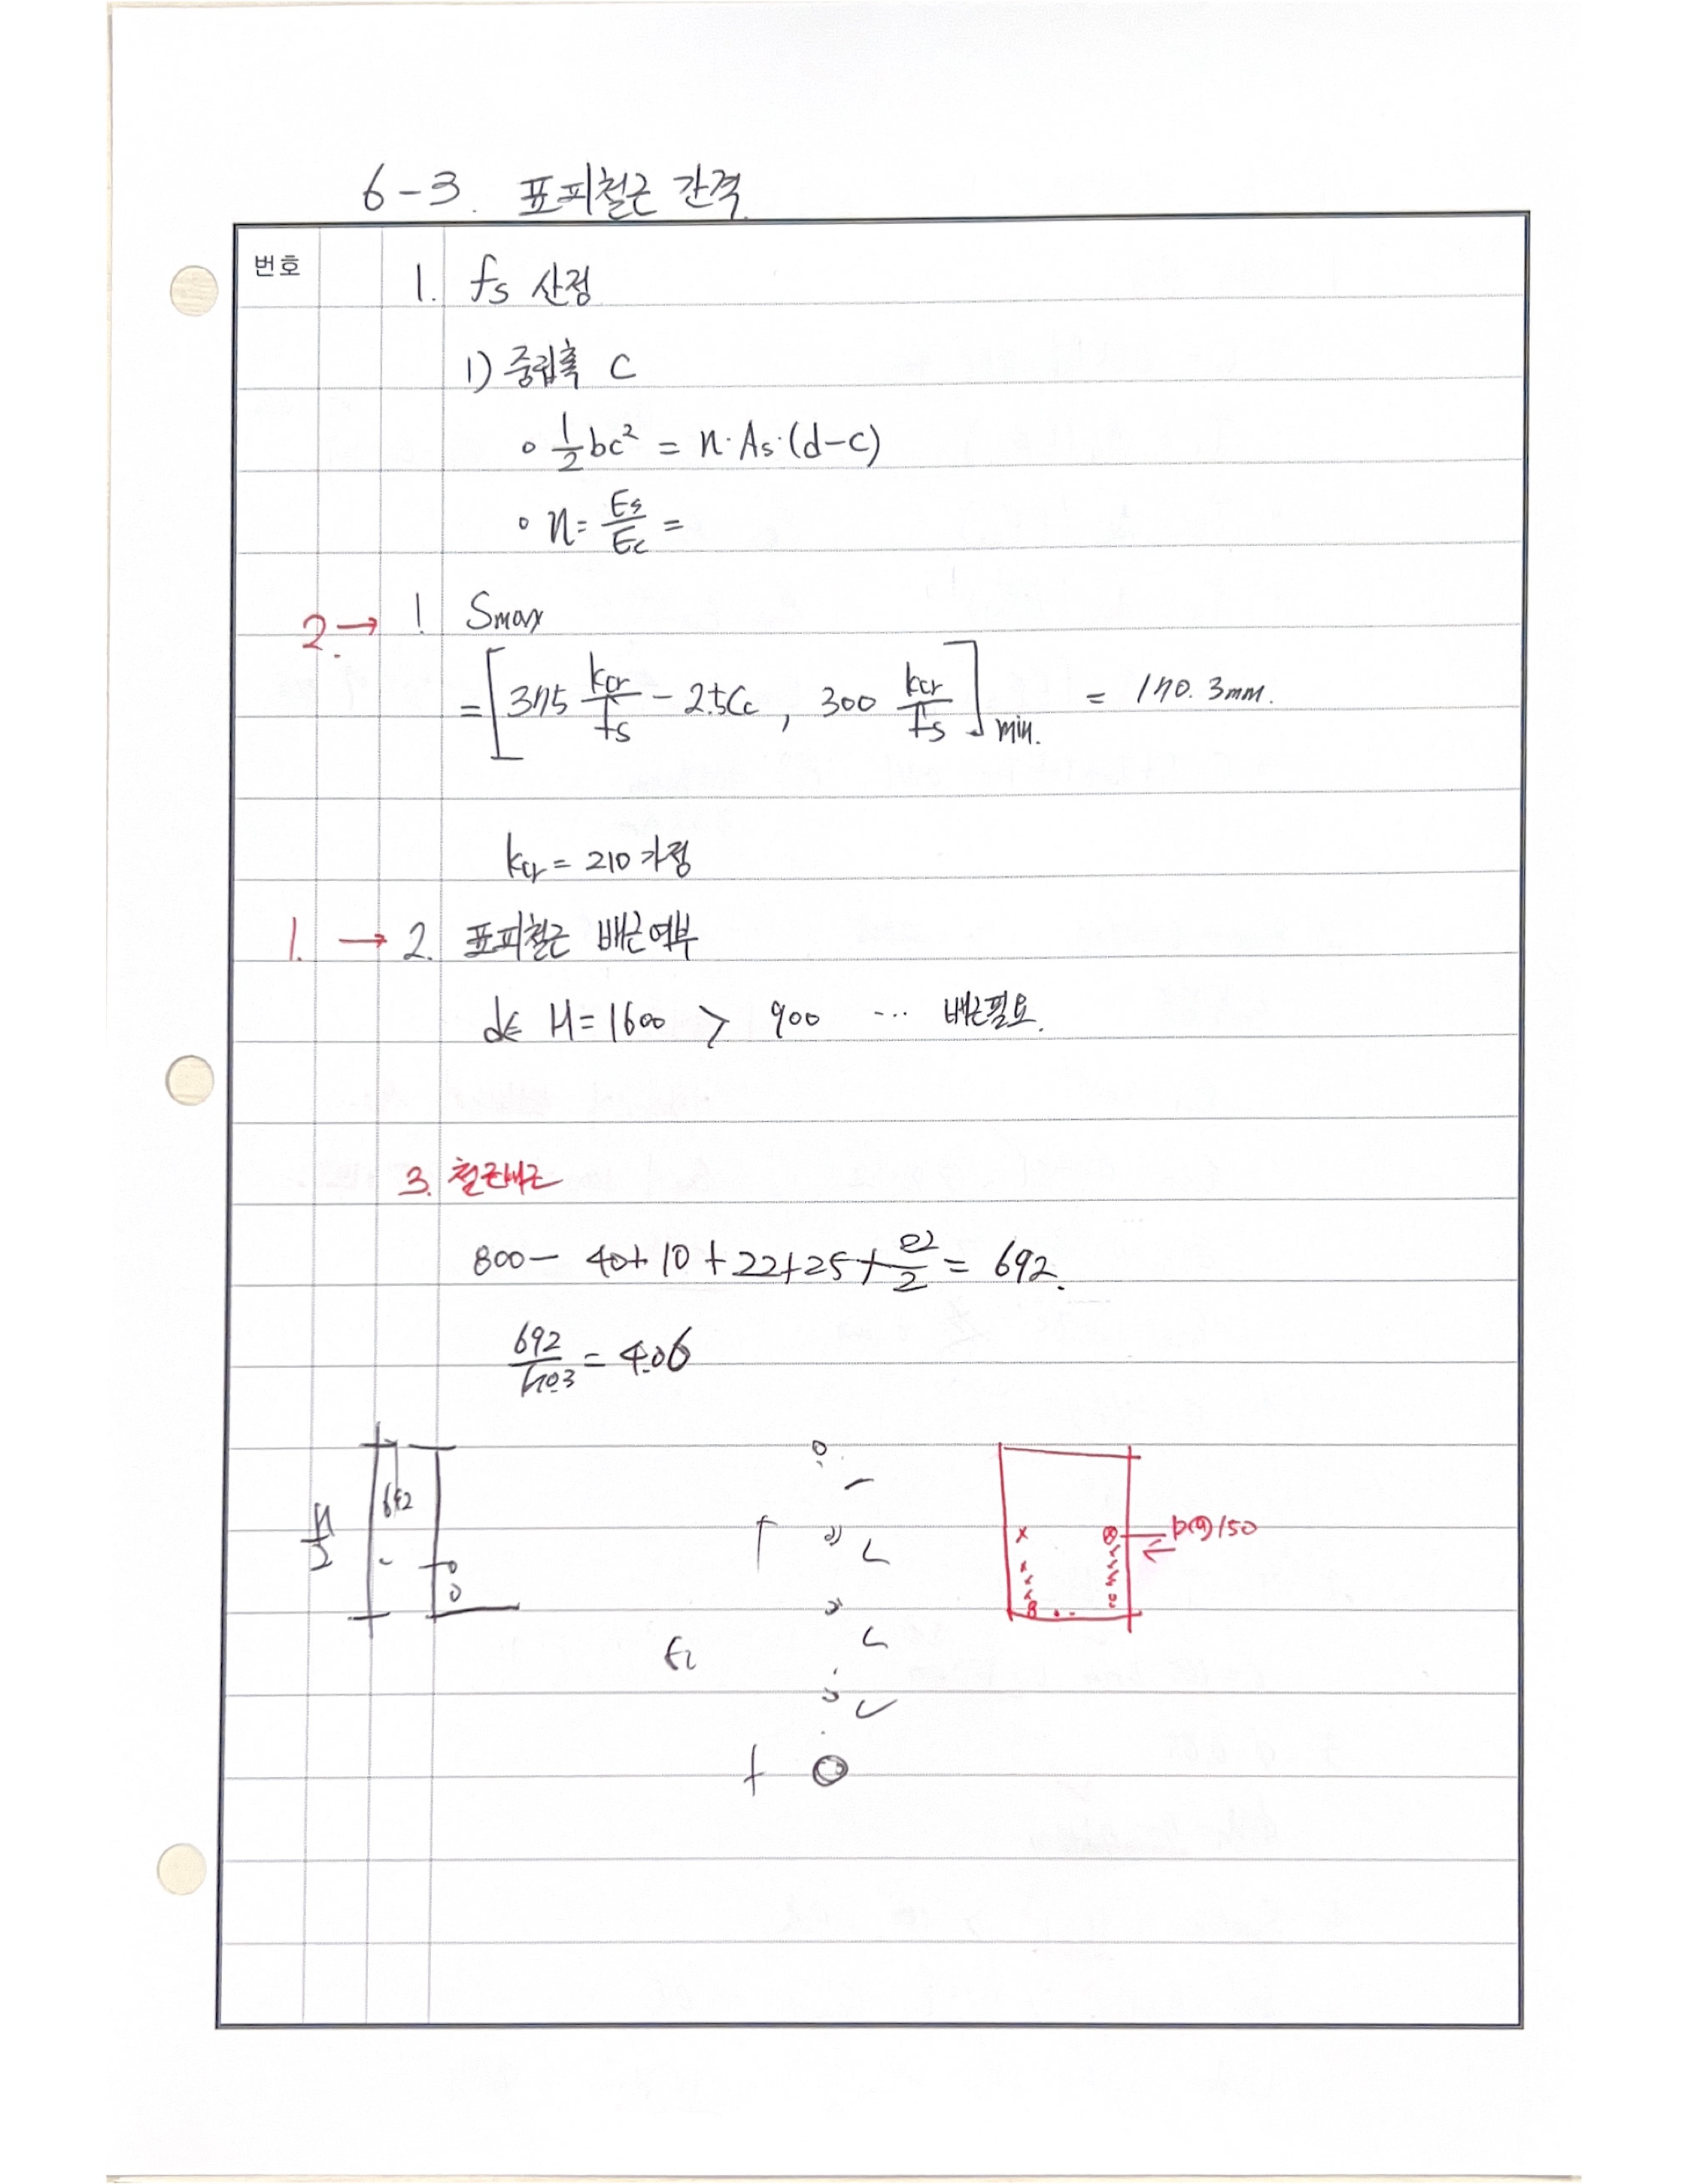 6-3. 표피철근 간격.
번호
1. fs 산정
1) 중립축 C
∘ 1/2 bc² = n·As·(d-c)
∘ n = Es/Ec =
2. → 1 Smax
= [375 kcr/fs - 2.5Cc , 300 kcr/fs] min. = 170.3mm.
kcr = 210 가정
1. → 2. 표피철근 배근여부
H = 1600 > 900 ... 배근필요.
3. 철근배근
800 - 40 + 10 + 22 + 25 + 22/2 = 692.
692/170.3 = 4.06
H/2
692
150